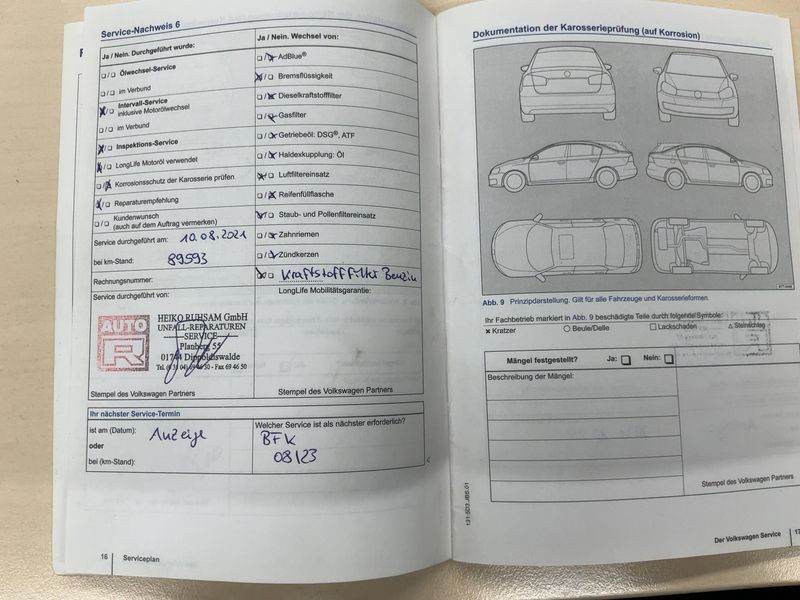 Service-Nachweis 6
Ja / Nein. Durchgeführt wurde:
Ölwechsel-Service
im Verbund
Intervall-Service
inklusive Motorölwechsel
im Verbund
Inspektions-Service
LongLife Motoröl verwendet
Korrosionsschutz der Karosserie prüfen
Reparaturempfehlung
Kundenwunsch
(auch auf dem Auftrag vermerken)
Service durchgeführt am: 10.08.2021
bei km-Stand: 89593
Rechnungsnummer:
Service durchgeführt von:
AUTO
R
HEIKO RUHSAM GmbH
UNFALL-REPARATUREN
SERVICE
Planberg 55
01744 Dippoldiswalde
Fax 69 46 50
Stempel des Volkswagen Partners
Ja / Nein. Wechsel von:
AdBlue®
Bremsflüssigkeit
Dieselkraftstofffilter
Gasfilter
Getriebeöl: DSG®, ATF
Haldexkupplung: Öl
Luftfiltereinsatz
Reifenfüllflasche
Staub- und Pollenfiltereinsatz
Zahnriemen
Zündkerzen
Kraftstofffilter Benzin
LongLife Mobilitätsgarantie:
Stempel des Volkswagen Partners
Ihr nächster Service-Termin
ist am (Datum): Anzeige
oder
bei (km-Stand):
Welcher Service ist als nächster erforderlich?
BFK
08/23
16 Serviceplan
Dokumentation der Karosserieprüfung (auf Korrosion)
Abb. 9 Prinzipdarstellung. Gilt für alle Fahrzeuge und Karosserieformen.
Ihr Fachbetrieb markiert in Abb. 9 beschädigte Teile durch folgende Symbole:
× Kratzer
Beule/Delle
Lackschaden
Steinschlag
Mängel festgestellt? Ja: Nein:
Beschreibung der Mängel:
Stempel des Volkswagen Partners
131.5D3.JBS.01
Der Volkswagen Service